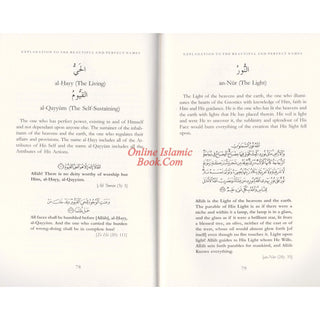 EXPLANATION TO THE BEAUTIFUL AND PERFECT NAMES
الحَيُّ
al-Hayy (The Living)
القَيُّومُ
al-Qayyūm (The Self-Sustaining)
The one who has perfect power, existing in and of Himself
and not dependant upon anyone else. The sustainer of the inhab-
itants of the heavens and the earth, the one who regulates their
affairs and provisions. The name al-Hayy includes all of the At-
tributes of His Self and the name al-Qayyūm includes all the
Attributes of His Actions.
Allāh! There is no deity worthy of worship but
Him, al-Hayy, al-Qayyūm.
All faces shall be humbled before (Allāh), al-Hayy,
al-Qayyūm. And the one who carried the burden
of wrong-doing shall be in complete loss!
78
EXPLANATION TO THE BEAUTIFUL AND PERFECT NAMES
النُّورُ
an-Nūr (The Light)
The Light of the heavens and the earth, the one who illumi-
nates the hearts of the Gnostics with knowledge of Him, faith in
Him and His guidance. He is the one who has lit the heavens and
the earth with lights that He has placed therein. His veil is light
and were He to uncover it, the sublimity and splendour of His
Face would burn everything of the creation that His Sight fell
upon.
Allāh is the Light of the heavens and the earth.
The parable of His Light is as if there were a
niche and within it a lamp, the lamp is in a glass,
and the glass as if it were a brilliant star, lit from
a blessed tree, an olive, neither of the east or of
the west, whose oil would almost glow forth [of
itself] even though no fire touches it. Light upon
light! Allāh guides to His Light whom He Wills.
Allāh sets forth parables for mankind, and Allāh
is the All-Knower of everything.
79
Online Islamic
Book.Com